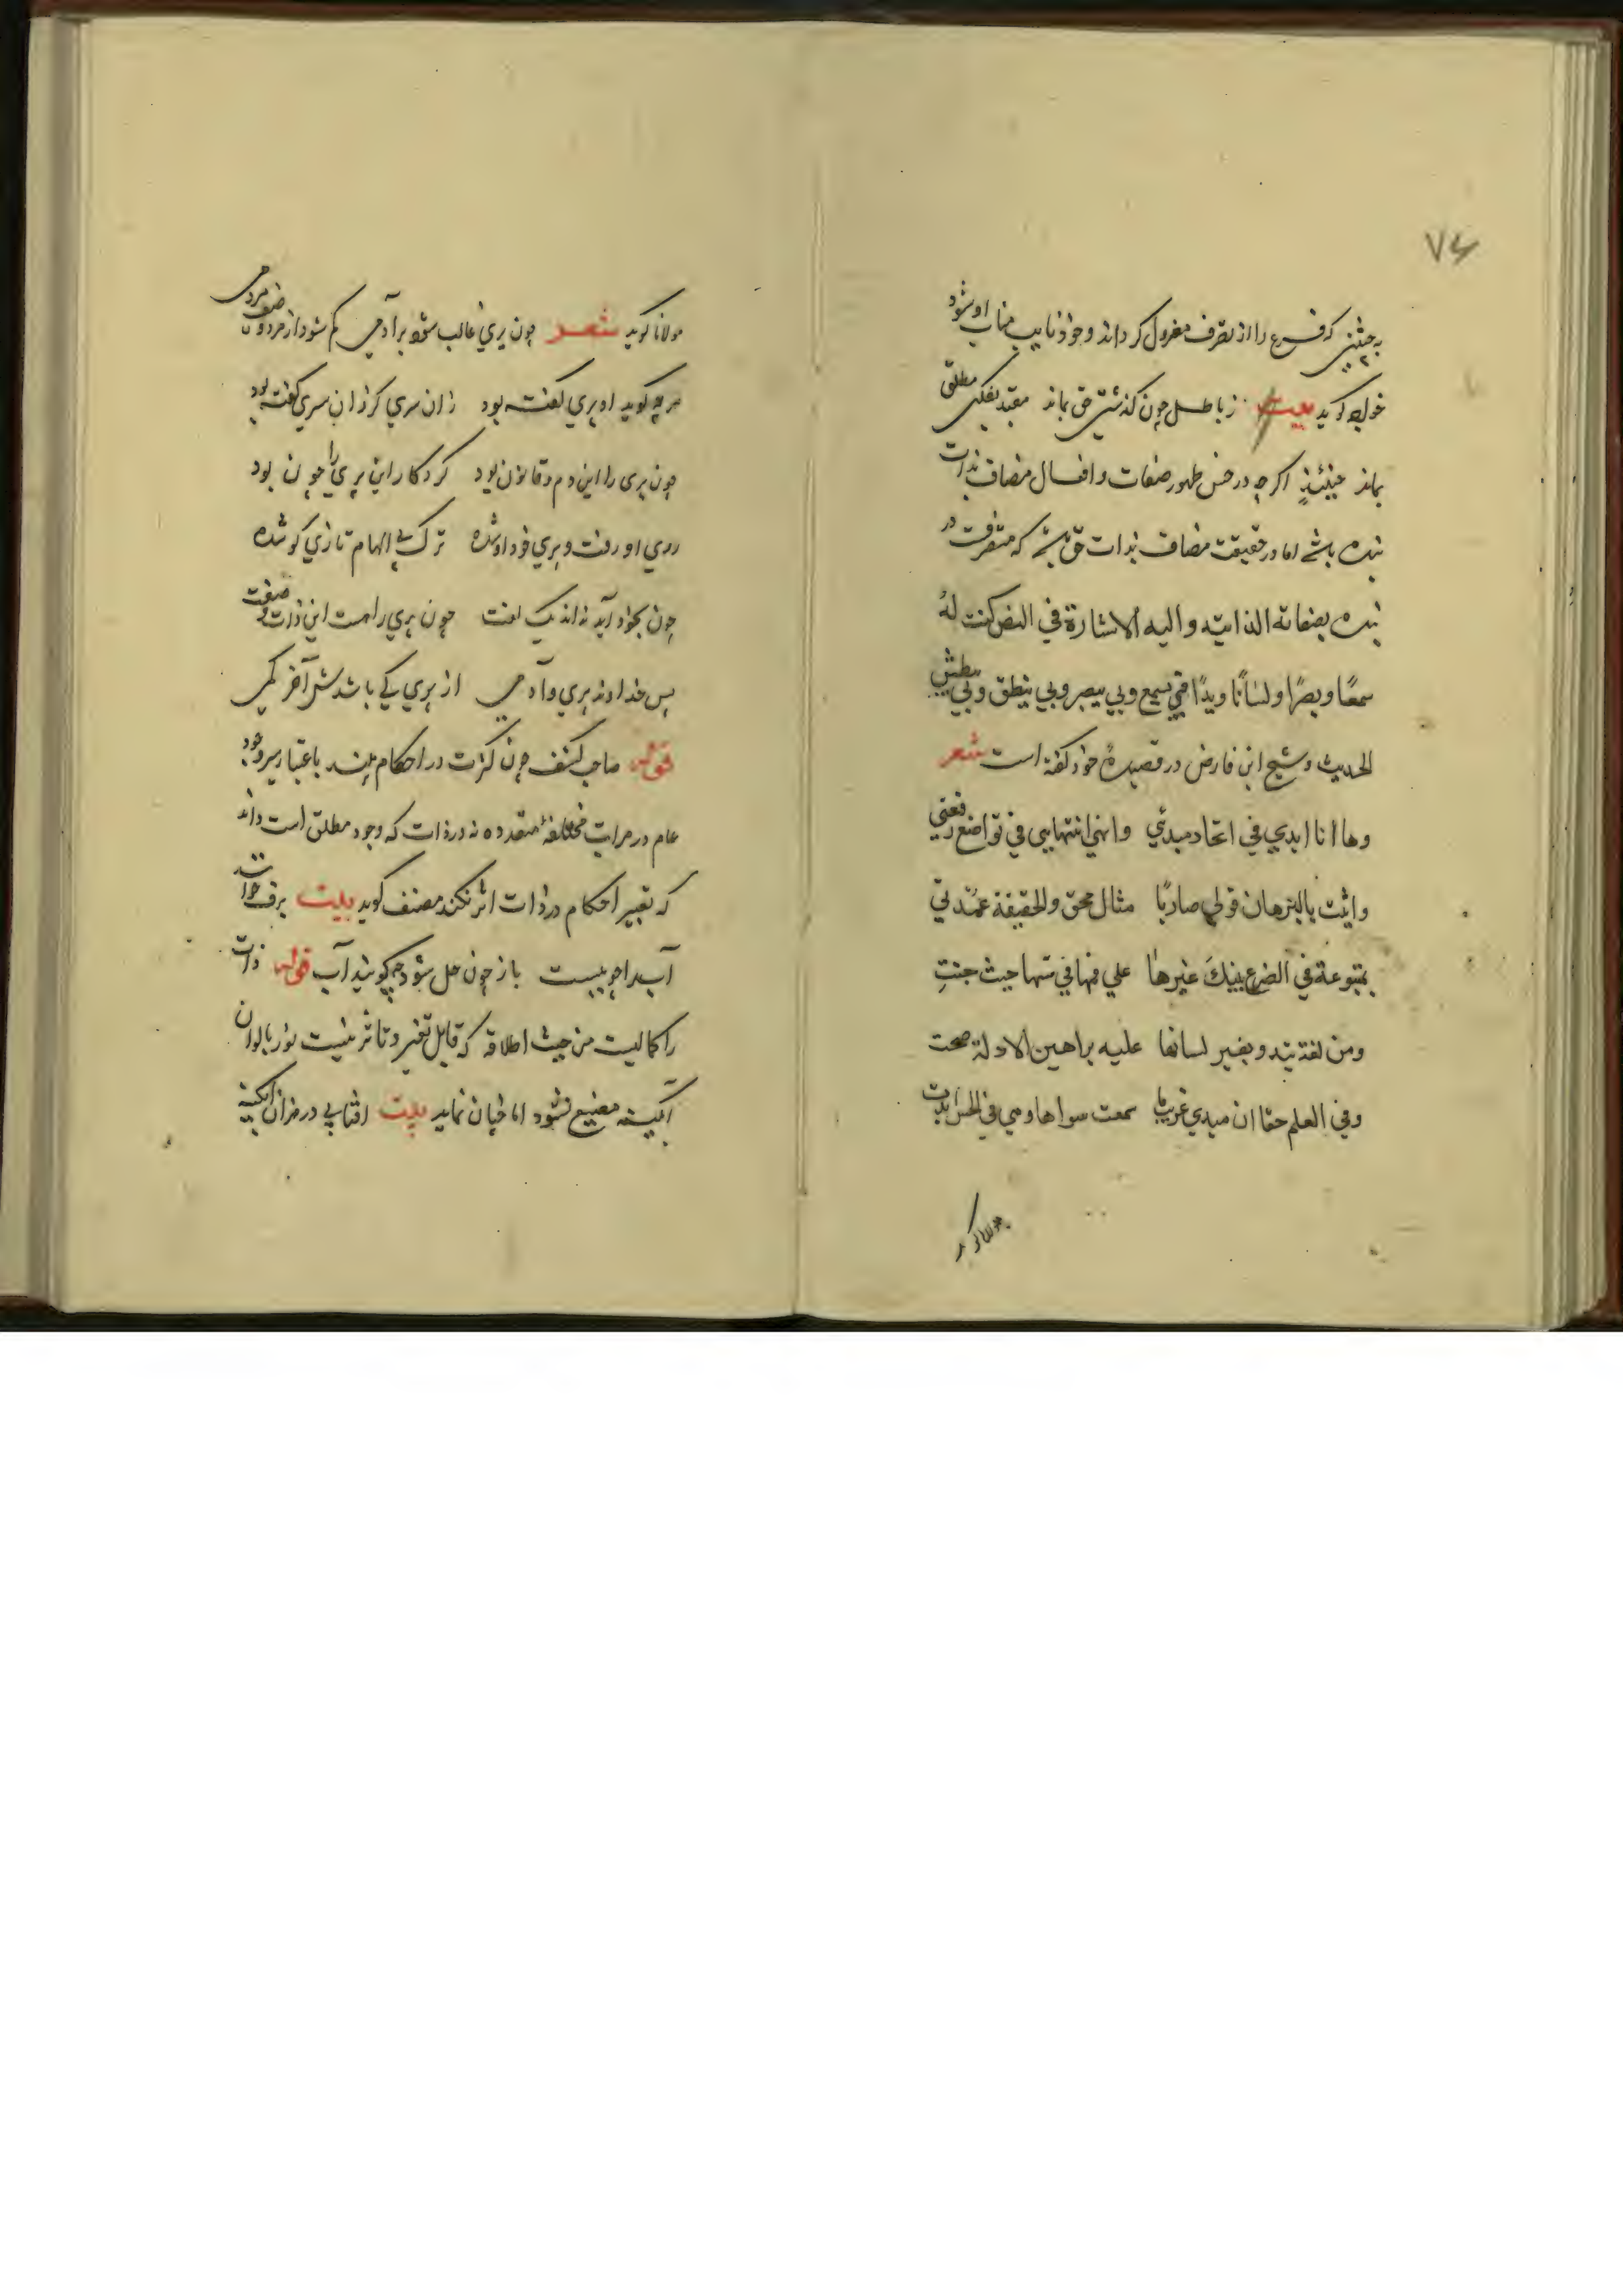 ٧٤
به حیثیتی که فرع را از تصرف معزول کرداند و خود نایب مناب او شود
خواجه کوید بیت ز باطل چون کذشتی حق بماند مقید بفکنی مطلق
بماند حینئذٍ اکر چه در حس ظهور صفات و افعال مضاف بذات
بنده باشد اما در حقیقت مضاف بذات حق باشد که متصرفست در
بنده بصفاته الذاتیه والیه الاشارة فی النص کنت لهُ
سمعًا وبصرًا ولسانًا ویدًا فبی یسمع وبی یبصر وبی ینطق وبی یبطش
الحدیث وشیخ ابن فارض در قصیدهٔ خود کفته است شعر
وها انا ابدي في اتحاد مبدئي وانهي انتهايي في تواضع رفعتي
واثبت بالبرهان قولي ضاربًا مثال محق والحقيقة عمدتي
بمتبوعة في الصرع ينبيكَ غيرها علي فمها في مسها حيث جنتِ
ومن لغة تبدو بغير لسانها عليه براهين الادلة صحت
وفي العلم حقا ان مبدي غريب ما سمعت سواها وهي في الحس ابدت
مولانا کوید
مولانا کوید شعر چون پری غالب شود بر آدمی کم شود از مرد وصف مردمی
هر چه کوید او پری کفته بود زان سری کر زان سری کفته بود
چون پری را این دم و قانون بود کردکار این پری را چون بود
روی او رفت و پری خود او شده ترک بی الهام تازی کو شده
چون بخود آید نداند یک لغت چون پری را هست این ذات و صفت
پس خداوند پری و آدمی از پری کی باشدش آخر کمی
قوله صاحب کشف چون کثرت در احکام بیند باعتبار سیر وجود
عام در مراتب مختلفهٔ متعدده نه در ذات که وجود مطلق است داند
که تغییر احکام در ذات اثر نکند مصنف کوید بیت برف خوانند
آب را چو ببست باز چون حل شود چه کویند آب قوله ذات
را کمالیست من حیث اطلاقه که قابل تغیر و تاثر نیست نور بالوان
آبکینه منصبغ نشود اما چنان نماید بیت آفتابی در هزاران آبکینه